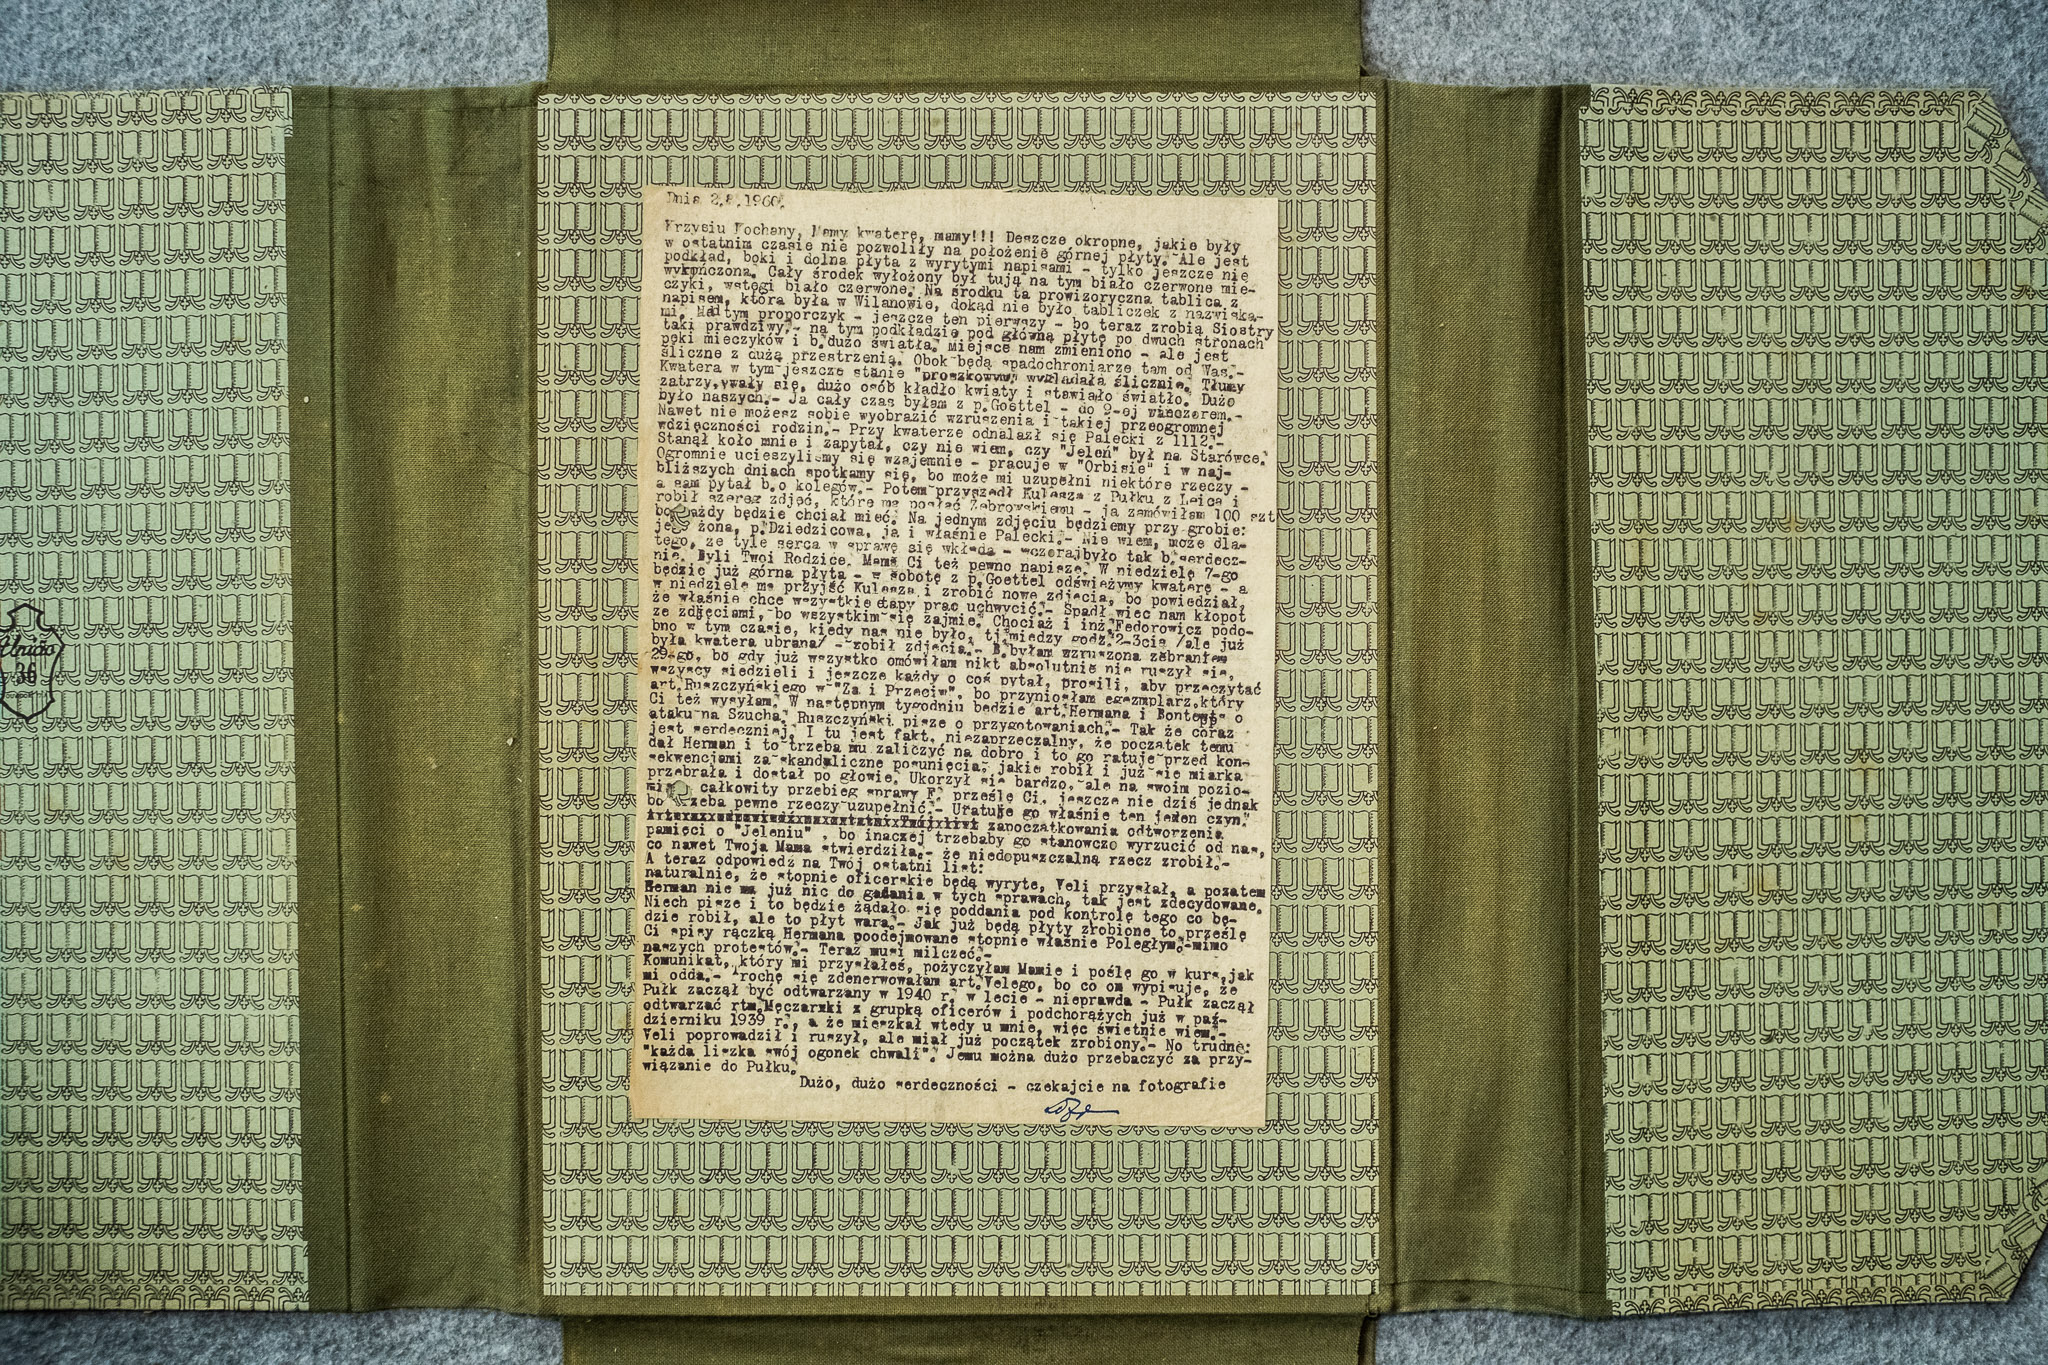 Dnia 2.8.1960.
Krzysiu Kochany, Mamy kwaterę, mamy!!! Deszcze okropne, jakie były
w ostatnim czasie nie pozwoliły na położenie górnej płyty. Ale jest
podkład, boki i dolna płyta z wyrytymi napisami - tylko jeszcze nie
wykończona. Cały środek wyłożony był tują na tym biało czerwone mie-
czyki, wstęgi biało czerwone. Na środku ta prowizoryczna tablica z
napisem, która była w Wilanowie, dokąd nie było tabliczek z nazwiska-
mi. Nad tym proporczyk - jeszcze ten pierwszy - bo teraz zrobią Siostry
taki prawdziwy.- na tym podkładzie pod główną płytę po dwuch stronach
pęki mieczyków i b.dużo światła. Miejsce nam zmieniono - ale jest
śliczne z dużą przestrzenią. Obok będą spadochroniarze tam od Was.-
Kwatera w tym jeszcze stanie "proszkowym" wyglądała ślicznie. Tłumy
zatrzymywały się, dużo osób kładło kwiaty i stawiało światło. Dużo
było naszych.- Ja cały czas byłam z p.Goettel - do 9-ej wieczorem.-
Nawet nie możesz sobie wyobrazić wzruszenia i takiej przeogromnej
wdzięczności rodzin.- Przy kwaterze odnalazł się Palecki z 1112.-
Stanął koło mnie i zapytał, czy nie wiem, czy "Jeleń" był na Starówce.
Ogromnie ucieszyliśmy się wzajemnie - pracuje w "Orbisie" i w naj-
bliższych dniach spotkamy się, bo może mi uzupełni niektóre rzeczy -
a sam pytał b.o kolegów.- Potem przyszedł Kulesza z Pułku z Leicą i
robił szereg zdjęć, które ma posłać Żabrowskiemu - ja zamówiłam 100 szt
bo każdy będzie chciał mieć. Na jednym zdjęciu będziemy przy grobie:
jego żona, p.Dziedzicowa, ja i właśnie Palecki.- Nie wiem, może dla-
tego, że tyle serca w sprawę się wkłada - wczoraj było tak b.serdecz-
nie. Byli Twoi Rodzice. Mama Ci też pewno napisze. W niedzielę 7-go
będzie już górna płyta - w sobotę z p.Goettel odświeżymy kwaterę - a
w niedzielę ma przyjść Kulesza i zrobić nowe zdjęcia, bo powiedział,
że właśnie chce wszystkie etapy prac uchwycić.- Spadł więc nam kłopot
ze zdjęciami, bo wszystkim się zajmie. Chociaż i inż.Fedorowicz podo-
bno w tym czasie, kiedy nas nie było, tj.miedzy godz.2-3cią /ale już
była kwatera ubrana/ - zobił zdjęcia.- B.byłam wzruszona zebraniem
29-go, bo gdy już wszystko omówiłam nikt absolutnie nie ruszył się,
wszyscy siedzieli i jeszcze każdy o coś pytał, prosili, aby przeczytać
art.Ruszczyńskiego w "Za i Przeciw", bo przyniosłam egzemplarz,który
Ci też wysyłam. W następnym tygodniu będzie art.Hermana i o
ataku na Szucha. Ruszczyński pisze o przygotowaniach.- Tak że coraz
jest serdeczniej. I tu jest fakt, niezaprzeczalny, że początek temu
dał Herman i to trzeba mu zaliczyć na dobro i to go ratuje przed kon-
sekwencjami za skandaliczne posunięcia, jakie robił i już się miarka
przebrała i dostał po głowie. Ukorzył się bardzo, ale na swoim pozio-
mie. całkowity przebieg sprawy F. prześlę Ci, jeszcze nie dziś jednak
bo trzeba pewne rzeczy uzupełnić.- Uratuje go właśnie ten jeden czyn.
zapoczątkowania odtworzenia
pamięci o "Jeleniu" , bo inaczej trzebaby go stanowczo wyrzucić od nas,
co nawet Twoja Mama stwierdziła.- że niedopuszczalną rzecz zrobił.-
A teraz odpowiedź na Twój ostatni list:
naturalnie, że stopnie oficerskie będą wyryte, Veli przysłał, a pozatem
Herman nie ma już nic do gadania w tych sprawach, tak jest zdecydowane.
Niech pisze i to będzie żądało się poddania pod kontrolę tego co bę-
dzie robił, ale to płyt wara.- Jak już będą płyty zrobione to prześlę
Ci spisy rączką Hermana poodejmowane stopnie właśnie Poległym.-mimo
naszych protestów.- Teraz musi milczeć.-
Komunikat, który mi przysłałeś, pożyczyłam Mamie i poślę go w kurs,jak
mi odda.- Trochę się zdenerwowałam art.Velego, bo co om wypisuje, że
Pułk zaczął być odtwarzany w 1940 r. w lecie - nieprawda - Pułk zaczął
odtwarzać rtm.Męczarski z grupką oficerów i podchorążych już w paź-
dzierniku 1939 r., a że mieszkał wtedy u mnie, więc świetnie wiem.-
Veli poprowadził i ruszył, ale miał już początek zrobiony.- No trudno:
"każda liszka swój ogonek chwali". Jemu można dużo przebaczyć za przy-
wiązanie do Pułku.
Dużo, dużo serdeczności - czekajcie na fotografie
Unića
36